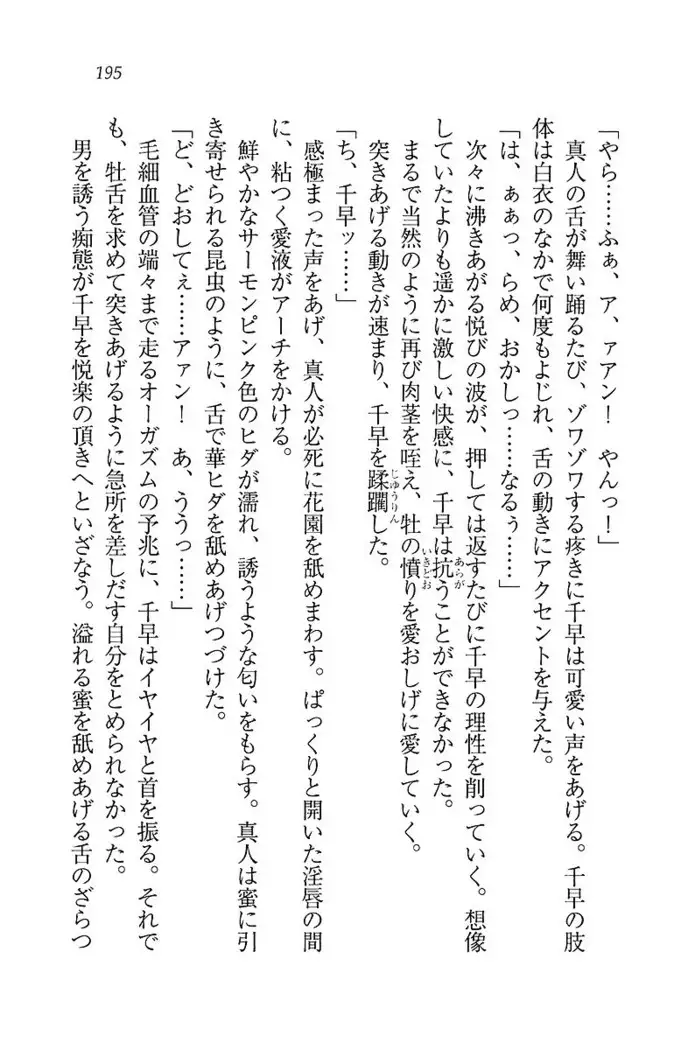 195
「やら……ふぁ、ア、ァアン！　やんっ！」
　真人の舌が舞い踊るたび、ゾワゾワする疼きに千早は可愛い声をあげる。千早の肢
体は白衣のなかで何度もよじれ、舌の動きにアクセントを与えた。
「は、ぁぁっ、らめ、おかしっ……なるぅ……」
　次々に沸きあがる悦びの波が、押しては返すたびに千早の理性を削っていく。想像
していたよりも遥かに激しい快感に、千早は抗うことができなかった。
　まるで当然のように再び肉茎を咥え、牡の憤りを愛おしげに愛していく。
　突きあげる動きが速まり、千早を蹂躙した。
「ち、千早ッ……」
　感極まった声をあげ、真人が必死に花園を舐めまわす。ぱっくりと開いた淫唇の間
に、粘つく愛液がアーチをかける。
　鮮やかなサーモンピンク色のヒダが濡れ、誘うような匂いをもらす。真人は蜜に引
き寄せられる昆虫のように、舌で華ヒダを舐めあげつづけた。
「ど、どおしてぇ……アァン！　あ、ううっ……」
　毛細血管の端々まで走るオーガズムの予兆に、千早はイヤイヤと首を振る。それで
も、牡舌を求めて突きあげるように急所を差しだす自分をとめられなかった。
　男を誘う痴態が千早を悦楽の頂きへといざなう。溢れる蜜を舐めあげる舌のざらつ